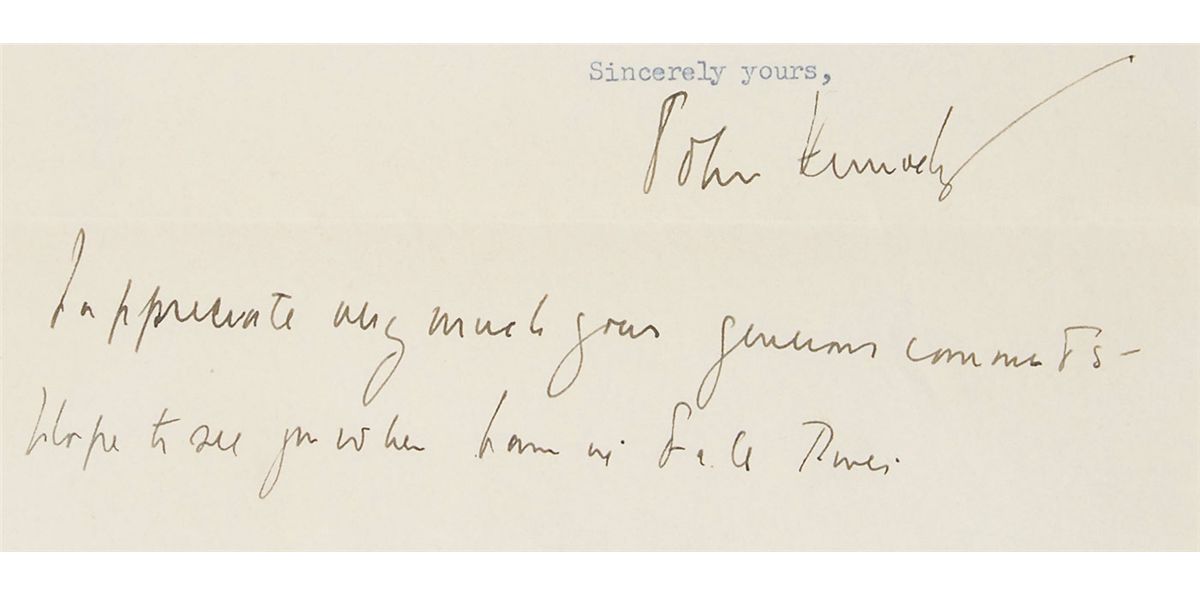 Sincerely yours,
John Kennedy
I appreciate very much your generous comments –
Hope to see you when I am in Fall River.